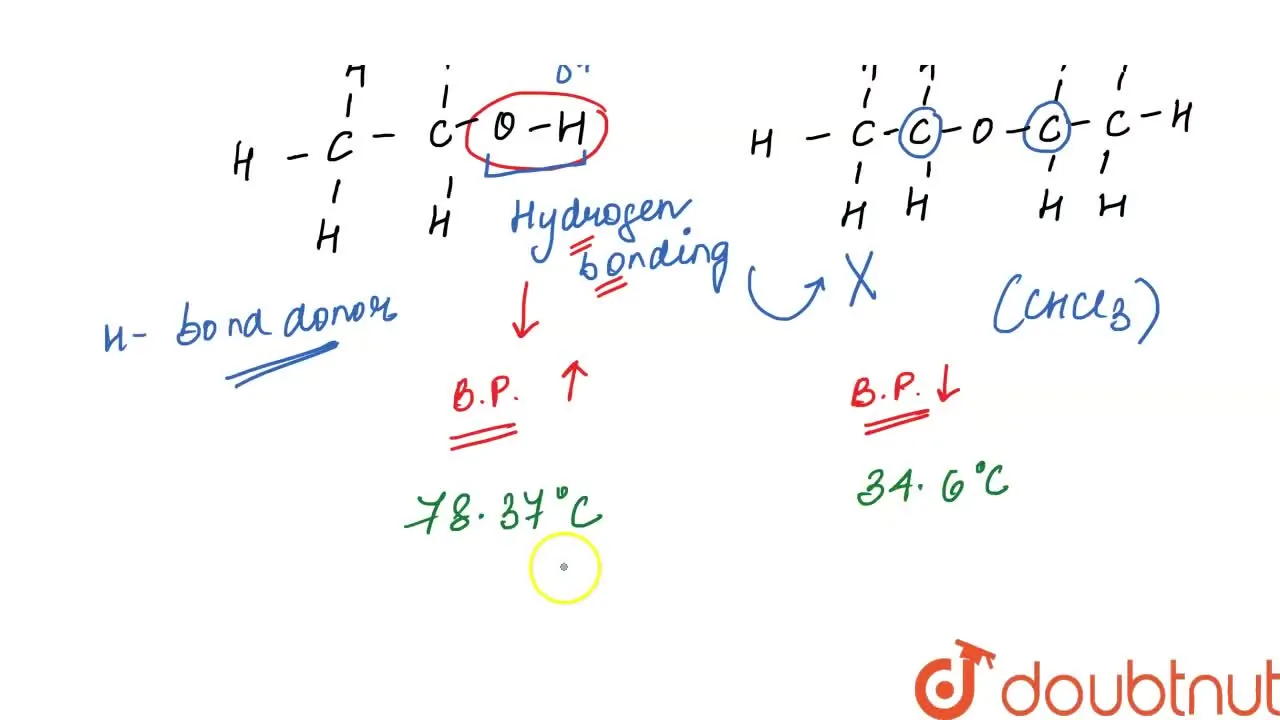 H H O H H H H H
H - C - C - O - H H - C - C - O - C - C - H
H H H H H H
Hydrogen
bonding X (CHCl3)
H- bond donor
B.P. ↑ B.P. ↓
78.37°C 34.6°C
doubtnut